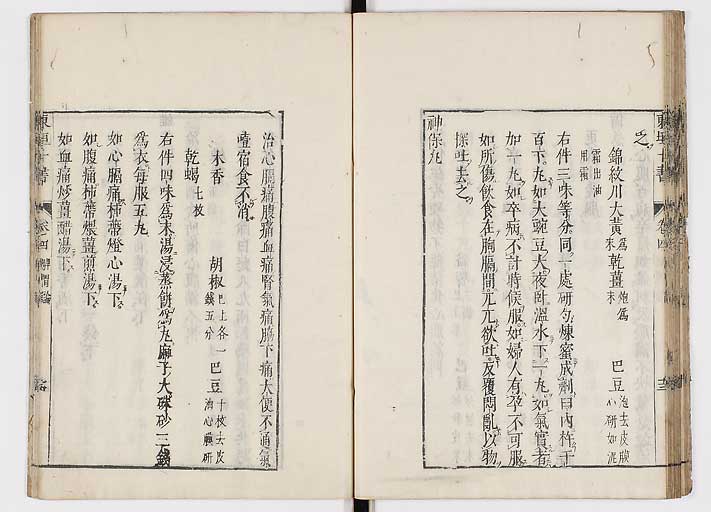 之
錦紋川大黃為末 乾薑炮為末 巴豆去皮膜心研如泥
霜出油用霜
右件三味等分同一處研勻煉蜜成劑臼內杵千
百下丸如大豌豆大夜臥溫水下一丸如氣實者
加一丸如卒病不計時候服如婦人有孕不可服
如所傷飲食在胸膈間兀兀欲吐反覆悶亂以物
探吐去之
神保丸
治心膈痛腹痛血痛腎氣痛脇下痛大便不通氣
噎宿食不消
木香 胡椒巴上各一錢五分 巴豆十枚去皮油心膜研
乾蝎七枚
右件四味為末湯浸蒸餅為丸麻子大硃砂三錢
為衣每服五丸
如心膈痛柿蒂燈心湯下
如腹痛柿蒂煨薑煎湯下
如血痛炒薑醋湯下
東垣十書 卷四